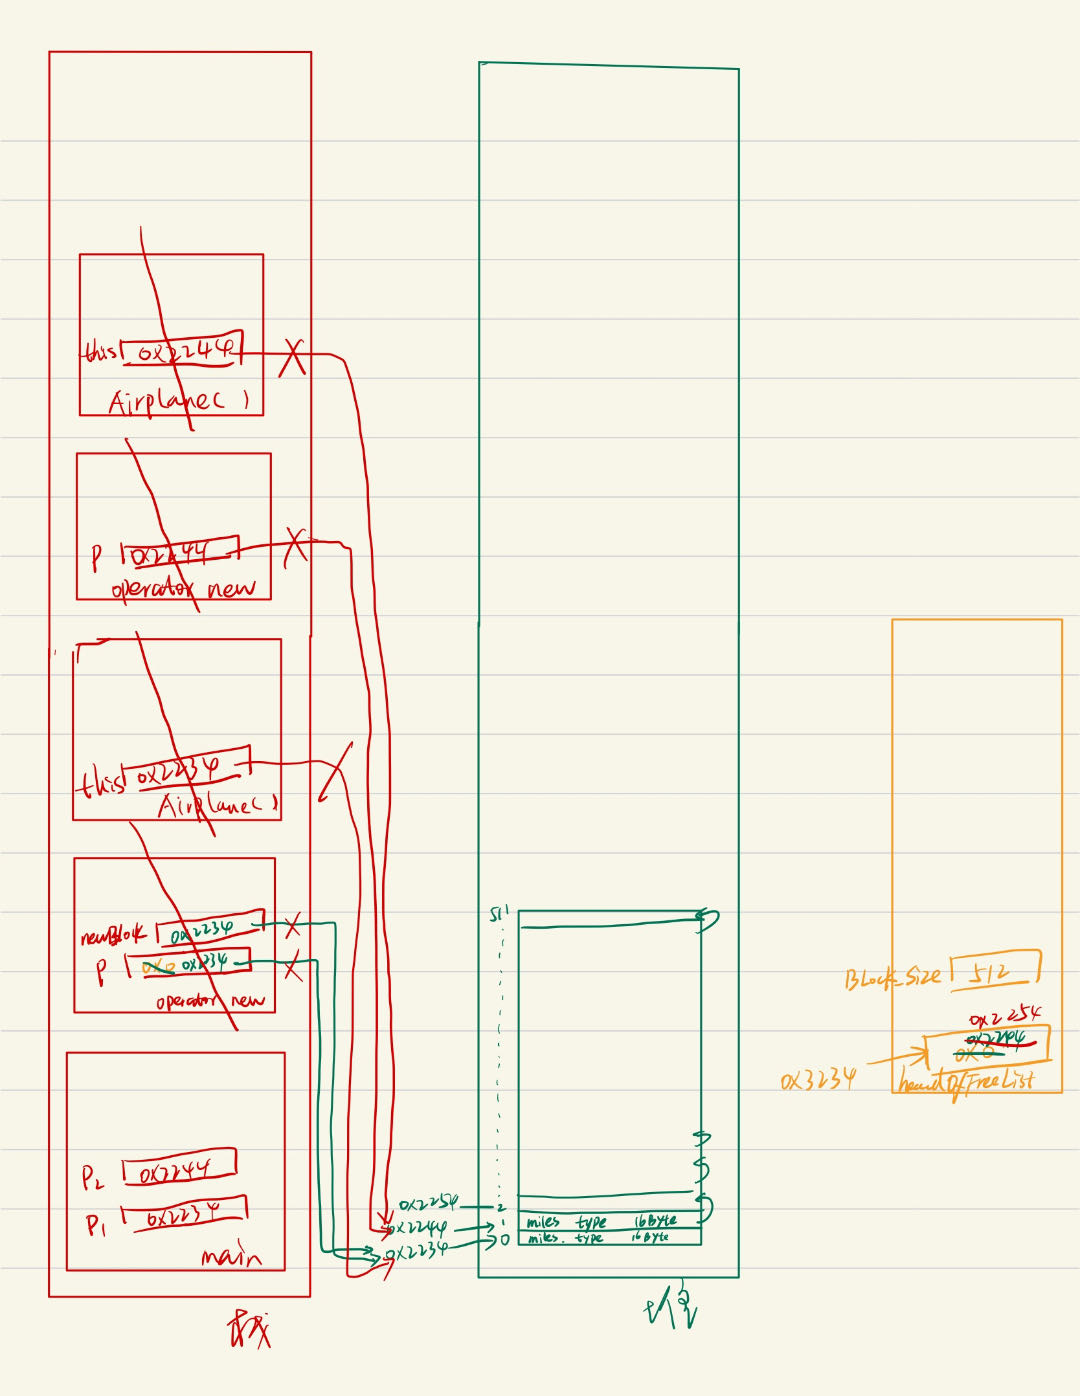 this 0x2244
Airplane( )
p 0x2244
operator new
this 0x2234
Airplane( )
newBlock 0x2234
p 0x0 0x2234
operator new
P2 0x2244
P1 0x2234
main
栈
511
0x2254 2
0x2244 1
0x2234 0
miles type 16Byte
miles. type 16Byte
堆
Block_Size 512
0x2254
0x2244
0x0
0x3234
headOfFreeList